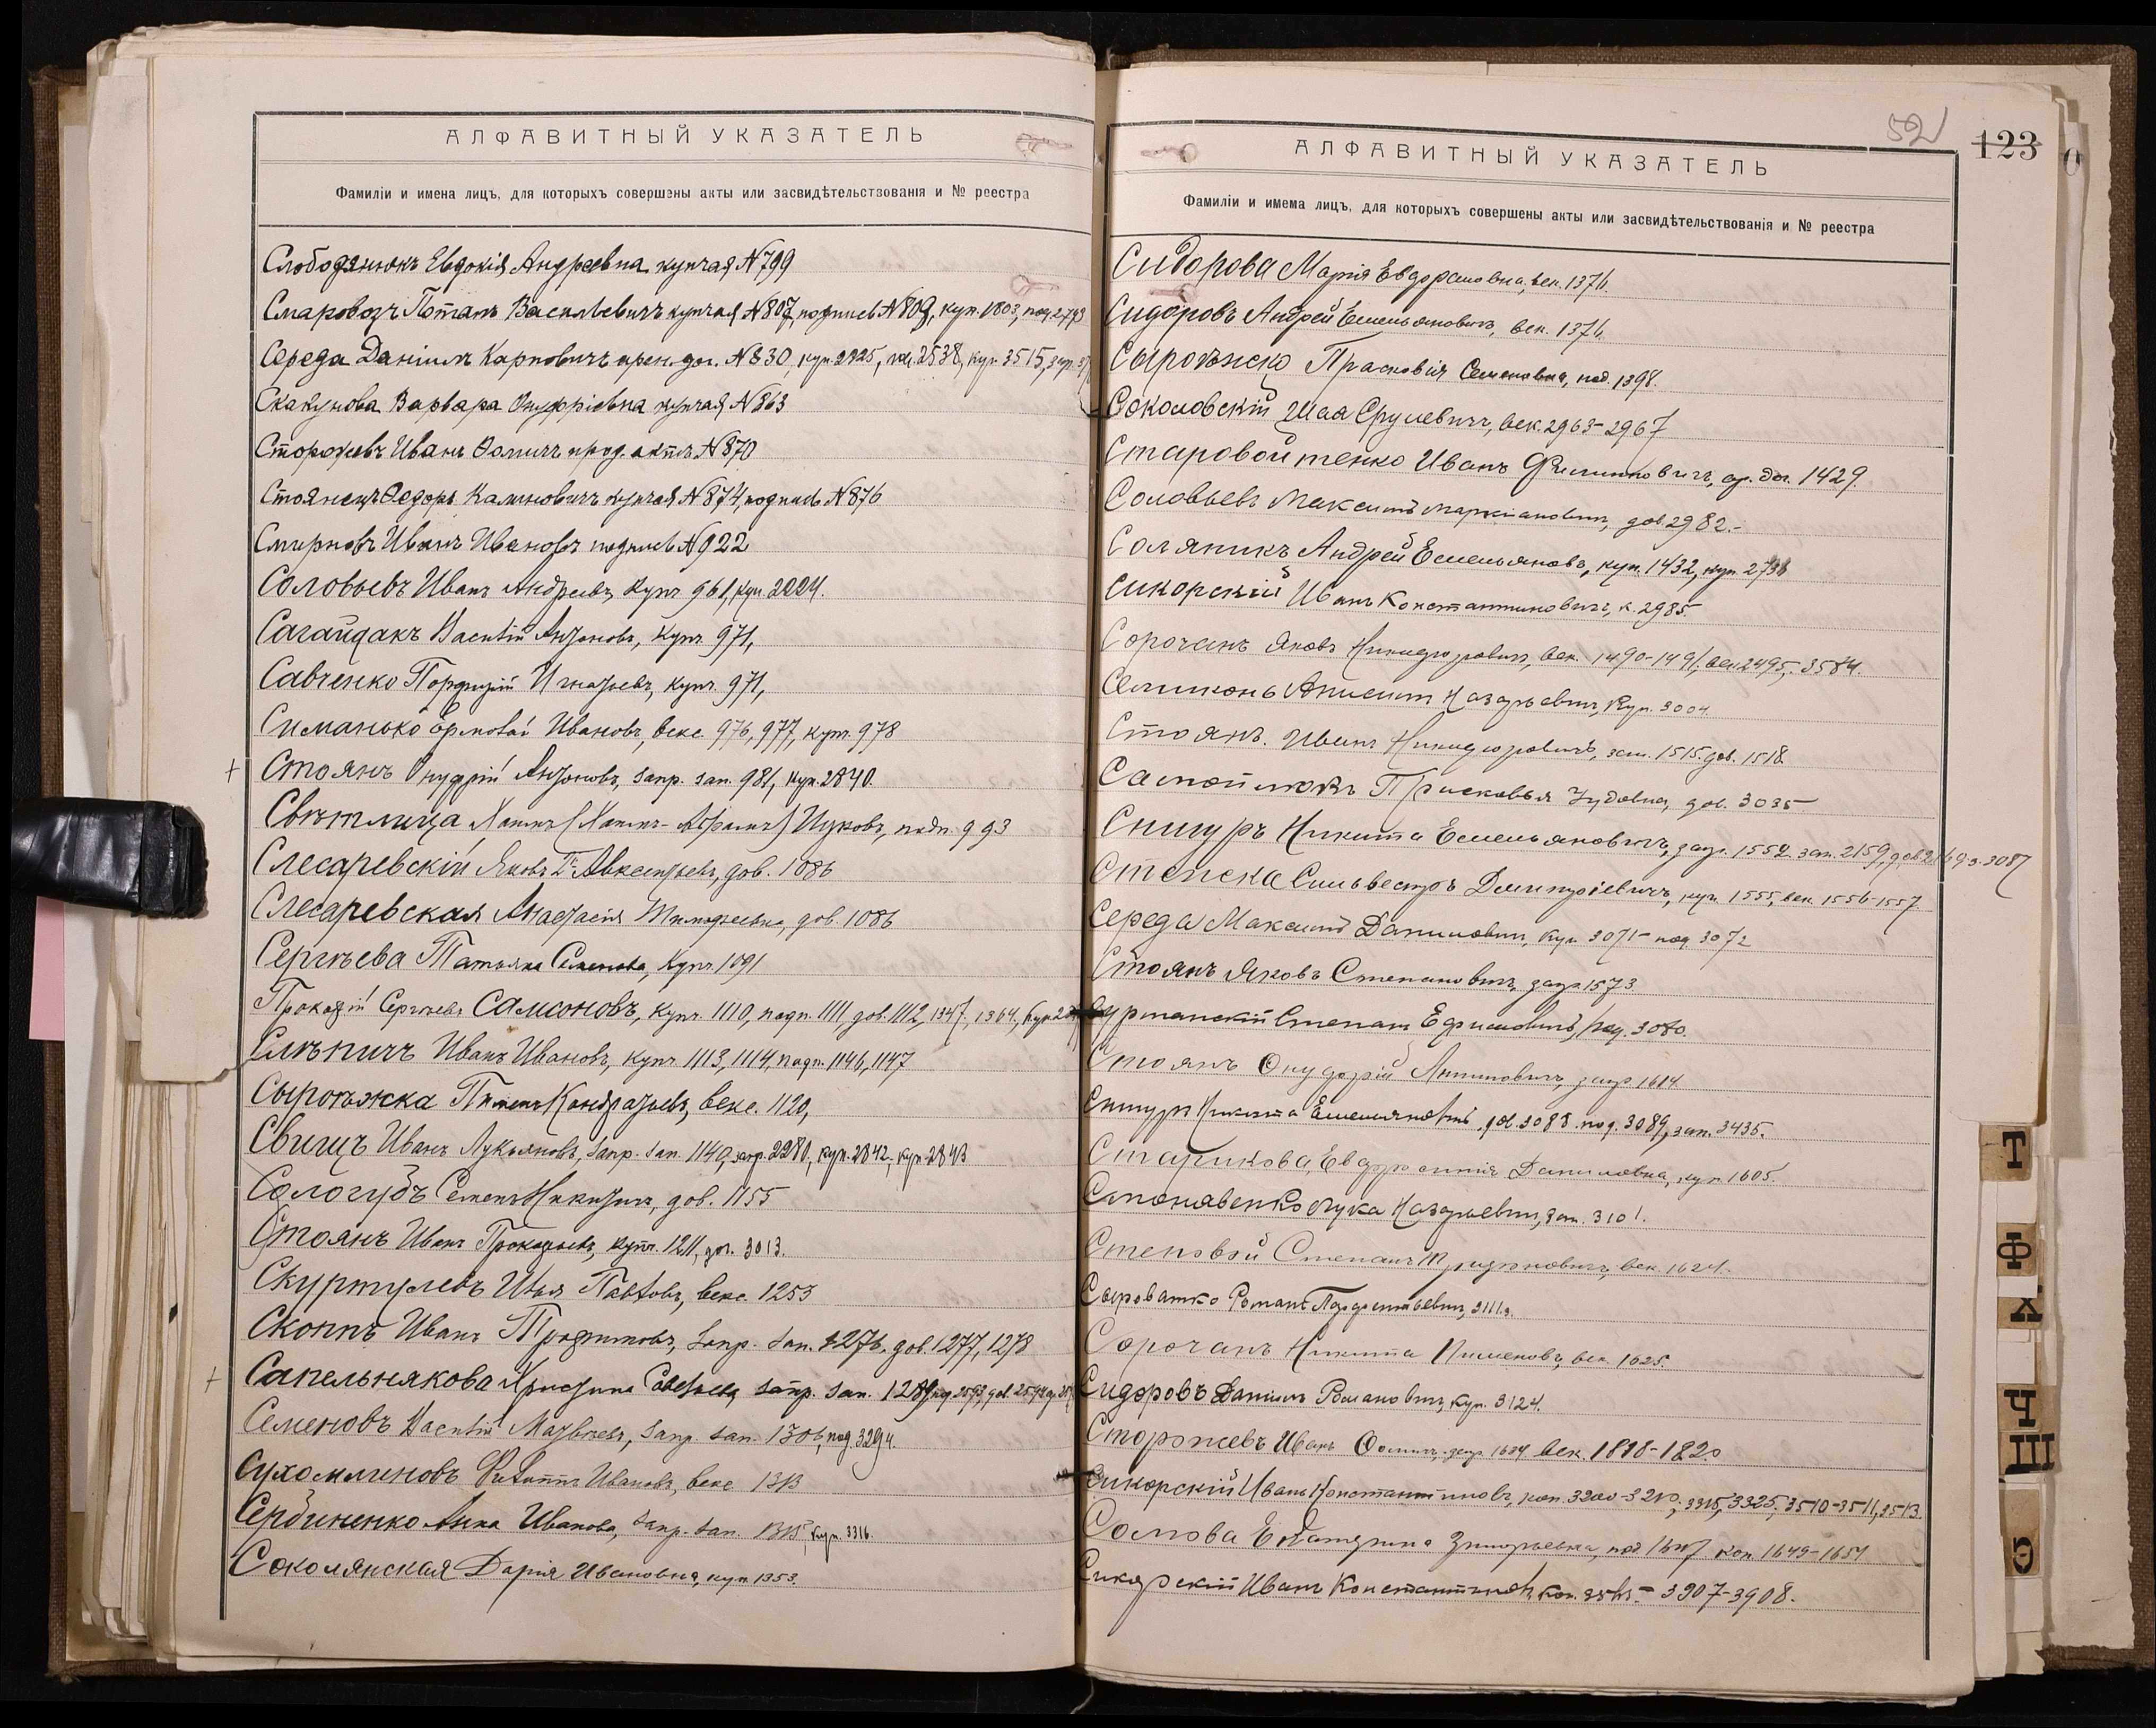 АЛФАВИТНЫЙ УКАЗАТЕЛЬ
Фамиліи и имена лицъ, для которыхъ совершены акты или засвидѣтельствованія и № реестра
Слободянюкъ Евдокія Андреевна купчая №799
Смаровозъ Потапъ Васильевичъ купчая №807, подпись №809, куп. 1803, под. 2793
Середа Даніилъ Карповичъ арен. дог. №830, куп. 2225, 2538, куп. 3515,
Скакунова Варвара Онуфріевна купчая №863
Сторожевъ Иванъ Ѳомичъ прод. актъ №870
Стоянецъ Ѳедоръ Калиновичъ купчая №874, подпись №876
Смирновъ Иванъ Ивановъ подпись №922
Соловьевъ Иванъ Андреевъ, купч. 961, куп. 2224.
Сагайдакъ Василій Антоновъ, купч. 971,
Савченко Порфирій Игнатьевъ, купч. 971,
Симанько Ивановъ, векс. 976, 977, купч. 978
+ Стоянъ Онуфрій Антоновъ, запр. зап. 981, куп. 2840.
Свѣтлица, Хаимъ (Хаимъ-Абрамъ) Ицковъ, подп. 993
Слесаревскій Яковъ Авксентьевъ, дов. 1086
Слесаревская Анастасія Тимофеевна, дов. 1086
Сергѣева Татьяна Семенова, купч. 1091
Прокофій Сергѣевъ Самсоновъ, купч. 1110, подп. 1111, дов. 1112, 1347, 1364,
Слѣпичъ Иванъ Ивановъ, купч. 1113, 1114, подп. 1146, 1147
Сыроѣжка Пименъ Кондратьевъ, векс. 1120,
Свищъ Иванъ Лукьяновъ, запр. зап. 1140, запр. 2280, куп. 2842, куп. 2843
Сологубъ Семенъ Никитичъ, дов. 1155
Стоянъ Иванъ Прокофьевъ, купч. 1211, дог. 3013.
Скуртулевъ Илья Павловъ, векс. 1253
Скоппъ Иванъ Трофимовъ, запр. зап. 1276, дов. 1277, 1278
+ Сапельнякова Христина Савельева, запр. зап.
Семеновъ Василій Матвѣевъ, запр. зап. 1306, под. 3294.
Сухомлиновъ Филиппъ Ивановъ, векс. 1313
Сербиненко Анна Иванова, запр. зап. куп. 3316.
Соколянская Дарія Ивановна, куп. 1353.
52
123
АЛФАВИТНЫЙ УКАЗАТЕЛЬ
Фамиліи и имема лицъ, для которыхъ совершены акты или засвидѣтельствованія и № реестра
Сидорова Марія век. 1376.
Сидоровъ Андрей Емельяновичъ, век. 1376
Сыроѣжко Прасковія Семеновна, под. 1398.
Соколовскій Шая Срулевичъ, век. 2963-2967
Старовойтенко Иванъ Филипповичъ, ар. дог. 1429.
Соловьевъ Максимъ Маркіановичъ, дов. 2982.-
Соляникъ Андрей Емельяновъ, куп. 1432, куп. 2738
Сикорскій Иванъ Константиновичъ, к. 2985.
Сорочанъ Яковъ Никифоровичъ, век. 1490-1491, век. 2495, 3584.
Селихонъ Анисимъ Назарьевичъ, куп. 3004.
Стоянъ. Иванъ Никифоровичъ, зап. 1515. дов. 1518.
Самойлюкъ Прасковья дов. 3035
Снигуръ Никита Емельяновичъ, запр. 1552. зап. 2159, 3087
Степска Сильвестръ Димитріевичъ, куп. 1555, век. 1556-1557
Середа Максимъ Даниловичъ, куп. 3071- под. 3072
Стоянъ Яковъ Степановичъ, запр. 1573
Степанъ Ефимовичъ, 3080.
Стоянъ Онуфрій Антиповичъ, запр. 1614
Снигуръ Никита Емельяновичъ, дов. 3088. под. 3089, зап. 3435.
Старикова, Евфросинія Даниловна, куп. 1605.
Лука Назарьевичъ, зап. 3101.
Степовой Степанъ Трифоновичъ, век. 1624.
Сыроватко Романъ
Сорочанъ Никита Пименовъ, век. 1625.
Сидоровъ Даніилъ Романовичъ, куп. 3124.
Сторожевъ Иванъ Ѳомичъ, запр. 1634 век. 1818-1820
Сикорскій Иванъ Константиновъ, коп. 3325, 3510-3511, 3513.
Сомова Екатерина Григорьевна, под. коп. 1649-1651
Сикорскій Иванъ Константиновъ, коп. 3907-3908.
Т
Ф
Х
Ч
Ш